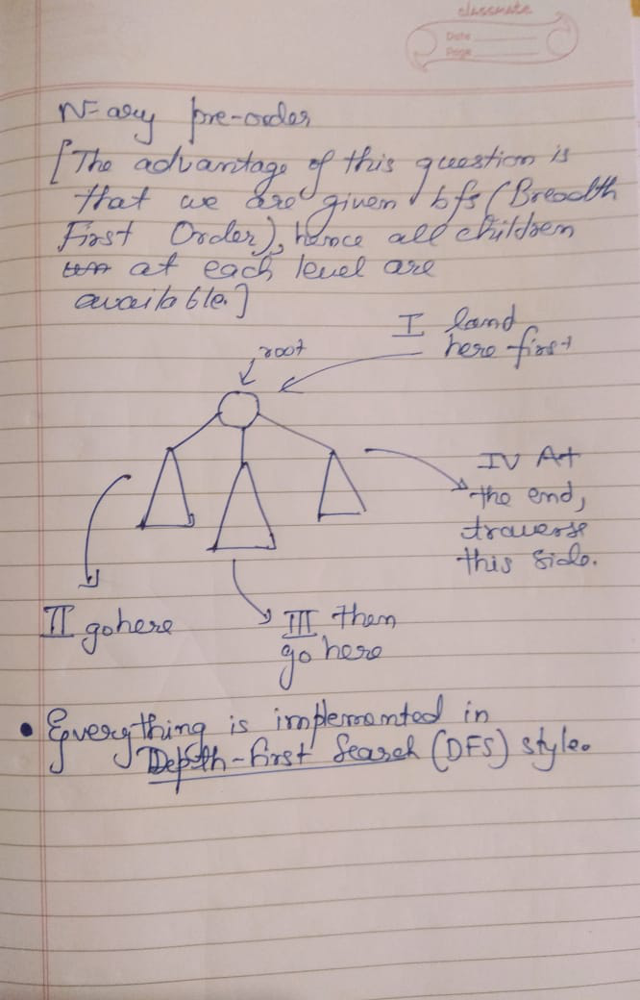 classmate
Date
Page
N-ary pre-order
[The advantage of this question is
that we are given bfs (Breadth
First Order), hence all children
at each level are
available.]
I land
here first
root
IV At
the end,
traverse
this side.
II go here
III then
go here
• Everything is implemented in
Depth-first Search (DFS) style.